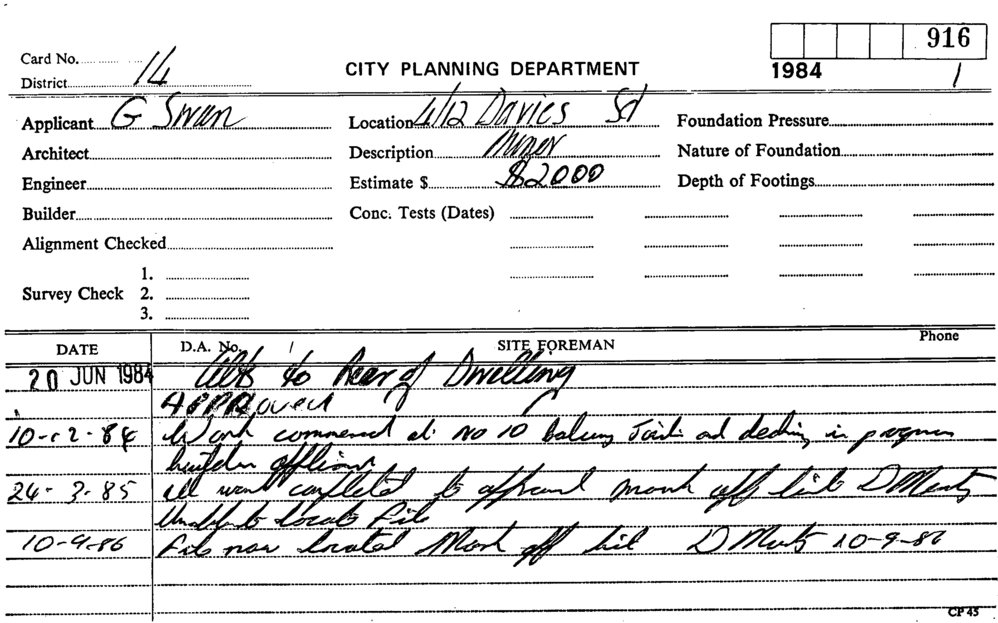 916
Card No. 14
CITY PLANNING DEPARTMENT
1984 1
District
Applicant G Swan Location 4/12 Davies St Foundation Pressure
Architect Description Minor Nature of Foundation
Engineer Estimate $ $2000 Depth of Footings
Builder Conc. Tests (Dates)
Alignment Checked
1.
Survey Check 2.
3.
DATE D.A. No. / SITE FOREMAN Phone
20 JUN 1984 Alts to Rear of Dwelling
APPROVED
10-12-84 Work commenced at No 10 balcony Joists and decking in progress
builder
24-3-85 all work completed to approval mark off list D
Unable to Locate File
10-9-86 File now located Mark off list D 10-9-86
CP 45